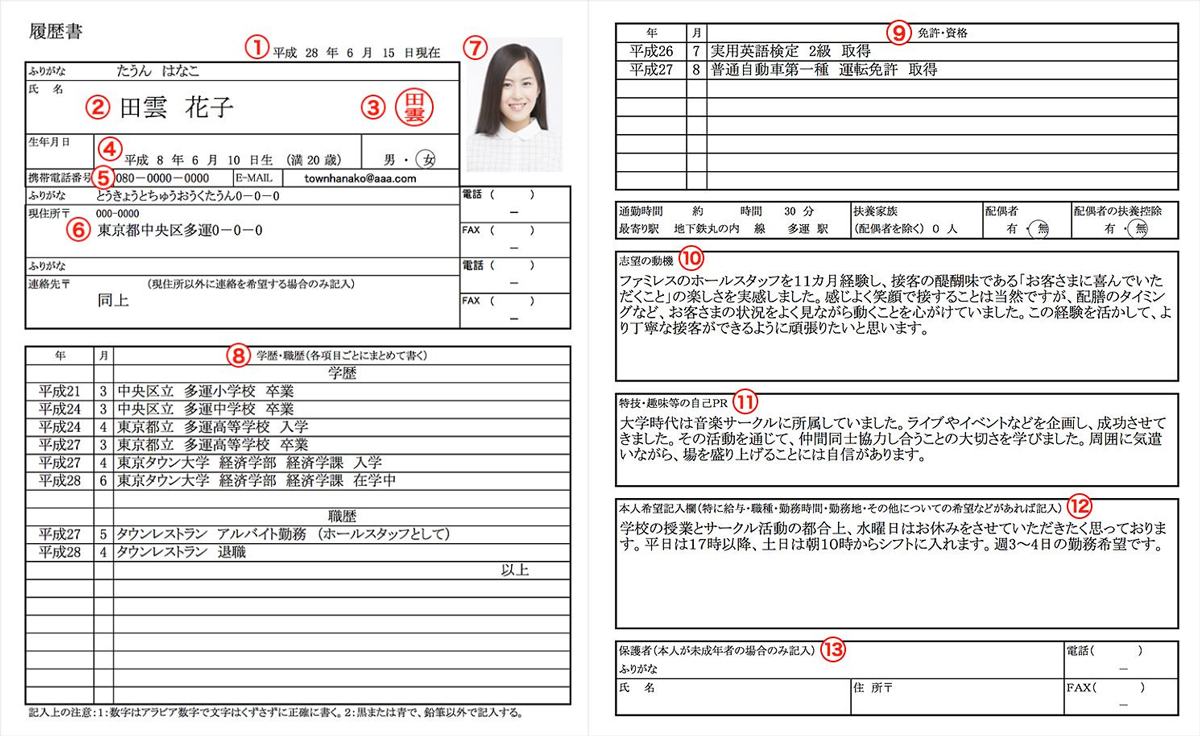 履歴書
① 平成 28 年 6 月 15 日現在
⑦
ふりがな たうん はなこ
氏 名
② 田雲 花子 ③ 田雲
生年月日
④ 平成 8 年 6 月 10 日生 (満 20 歳) 男 ・ 女
携帯電話番号 ⑤ 080－0000－0000 E-MAIL townhanako@aaa.com
ふりがな とうきょうとちゅうおうくたうん0－0－0
電話 ( )
－
現住所〒 000-0000
⑥ 東京都中央区多運0－0－0
FAX ( )
－
ふりがな
電話 ( )
－
連絡先〒 (現住所以外に連絡を希望する場合のみ記入)
同上
FAX ( )
－
年 月 ⑧ 学歴・職歴(各項目ごとにまとめて書く)
学歴
平成21 3 中央区立 多運小学校 卒業
平成24 3 中央区立 多運中学校 卒業
平成24 4 東京都立 多運高等学校 入学
平成27 3 東京都立 多運高等学校 卒業
平成27 4 東京タウン大学 経済学部 経済学課 入学
平成28 6 東京タウン大学 経済学部 経済学課 在学中
職歴
平成27 5 タウンレストラン アルバイト勤務 (ホールスタッフとして)
平成28 4 タウンレストラン 退職
以上
記入上の注意:1:数字はアラビア数字で文字はくずさずに正確に書く。2:黒または青で、鉛筆以外で記入する。
年 月 ⑨ 免許・資格
平成26 7 実用英語検定 2級 取得
平成27 8 普通自動車第一種 運転免許 取得
通勤時間 約 時間 30 分
最寄り駅 地下鉄丸の内 線 多運 駅
扶養家族
(配偶者を除く) 0 人
配偶者
有 ・ 無
配偶者の扶養控除
有 ・ 無
志望の動機 ⑩
ファミレスのホールスタッフを11カ月経験し、接客の醍醐味である「お客さまに喜んでいた
だくこと」の楽しさを実感しました。感じよく笑顔で接することは当然ですが、配膳のタイミン
グなど、お客さまの状況をよく見ながら動くことを心がけていました。この経験を活かして、よ
り丁寧な接客ができるように頑張りたいと思います。
特技・趣味等の自己PR ⑪
大学時代は音楽サークルに所属していました。ライブやイベントなどを企画し、成功させて
きました。その活動を通じて、仲間同士協力し合うことの大切さを学びました。周囲に気遣
いながら、場を盛り上げることには自信があります。
本人希望記入欄(特に給与・職種・勤務時間・勤務地・その他についての希望などがあれば記入) ⑫
学校の授業とサークル活動の都合上、水曜日はお休みをさせていただきたく思っておりま
す。平日は17時以降、土日は朝10時からシフトに入れます。週3～4日の勤務希望です。
保護者(本人が未成年者の場合のみ記入) ⑬
ふりがな
電話( )
－
氏 名 住 所〒
FAX( )
－